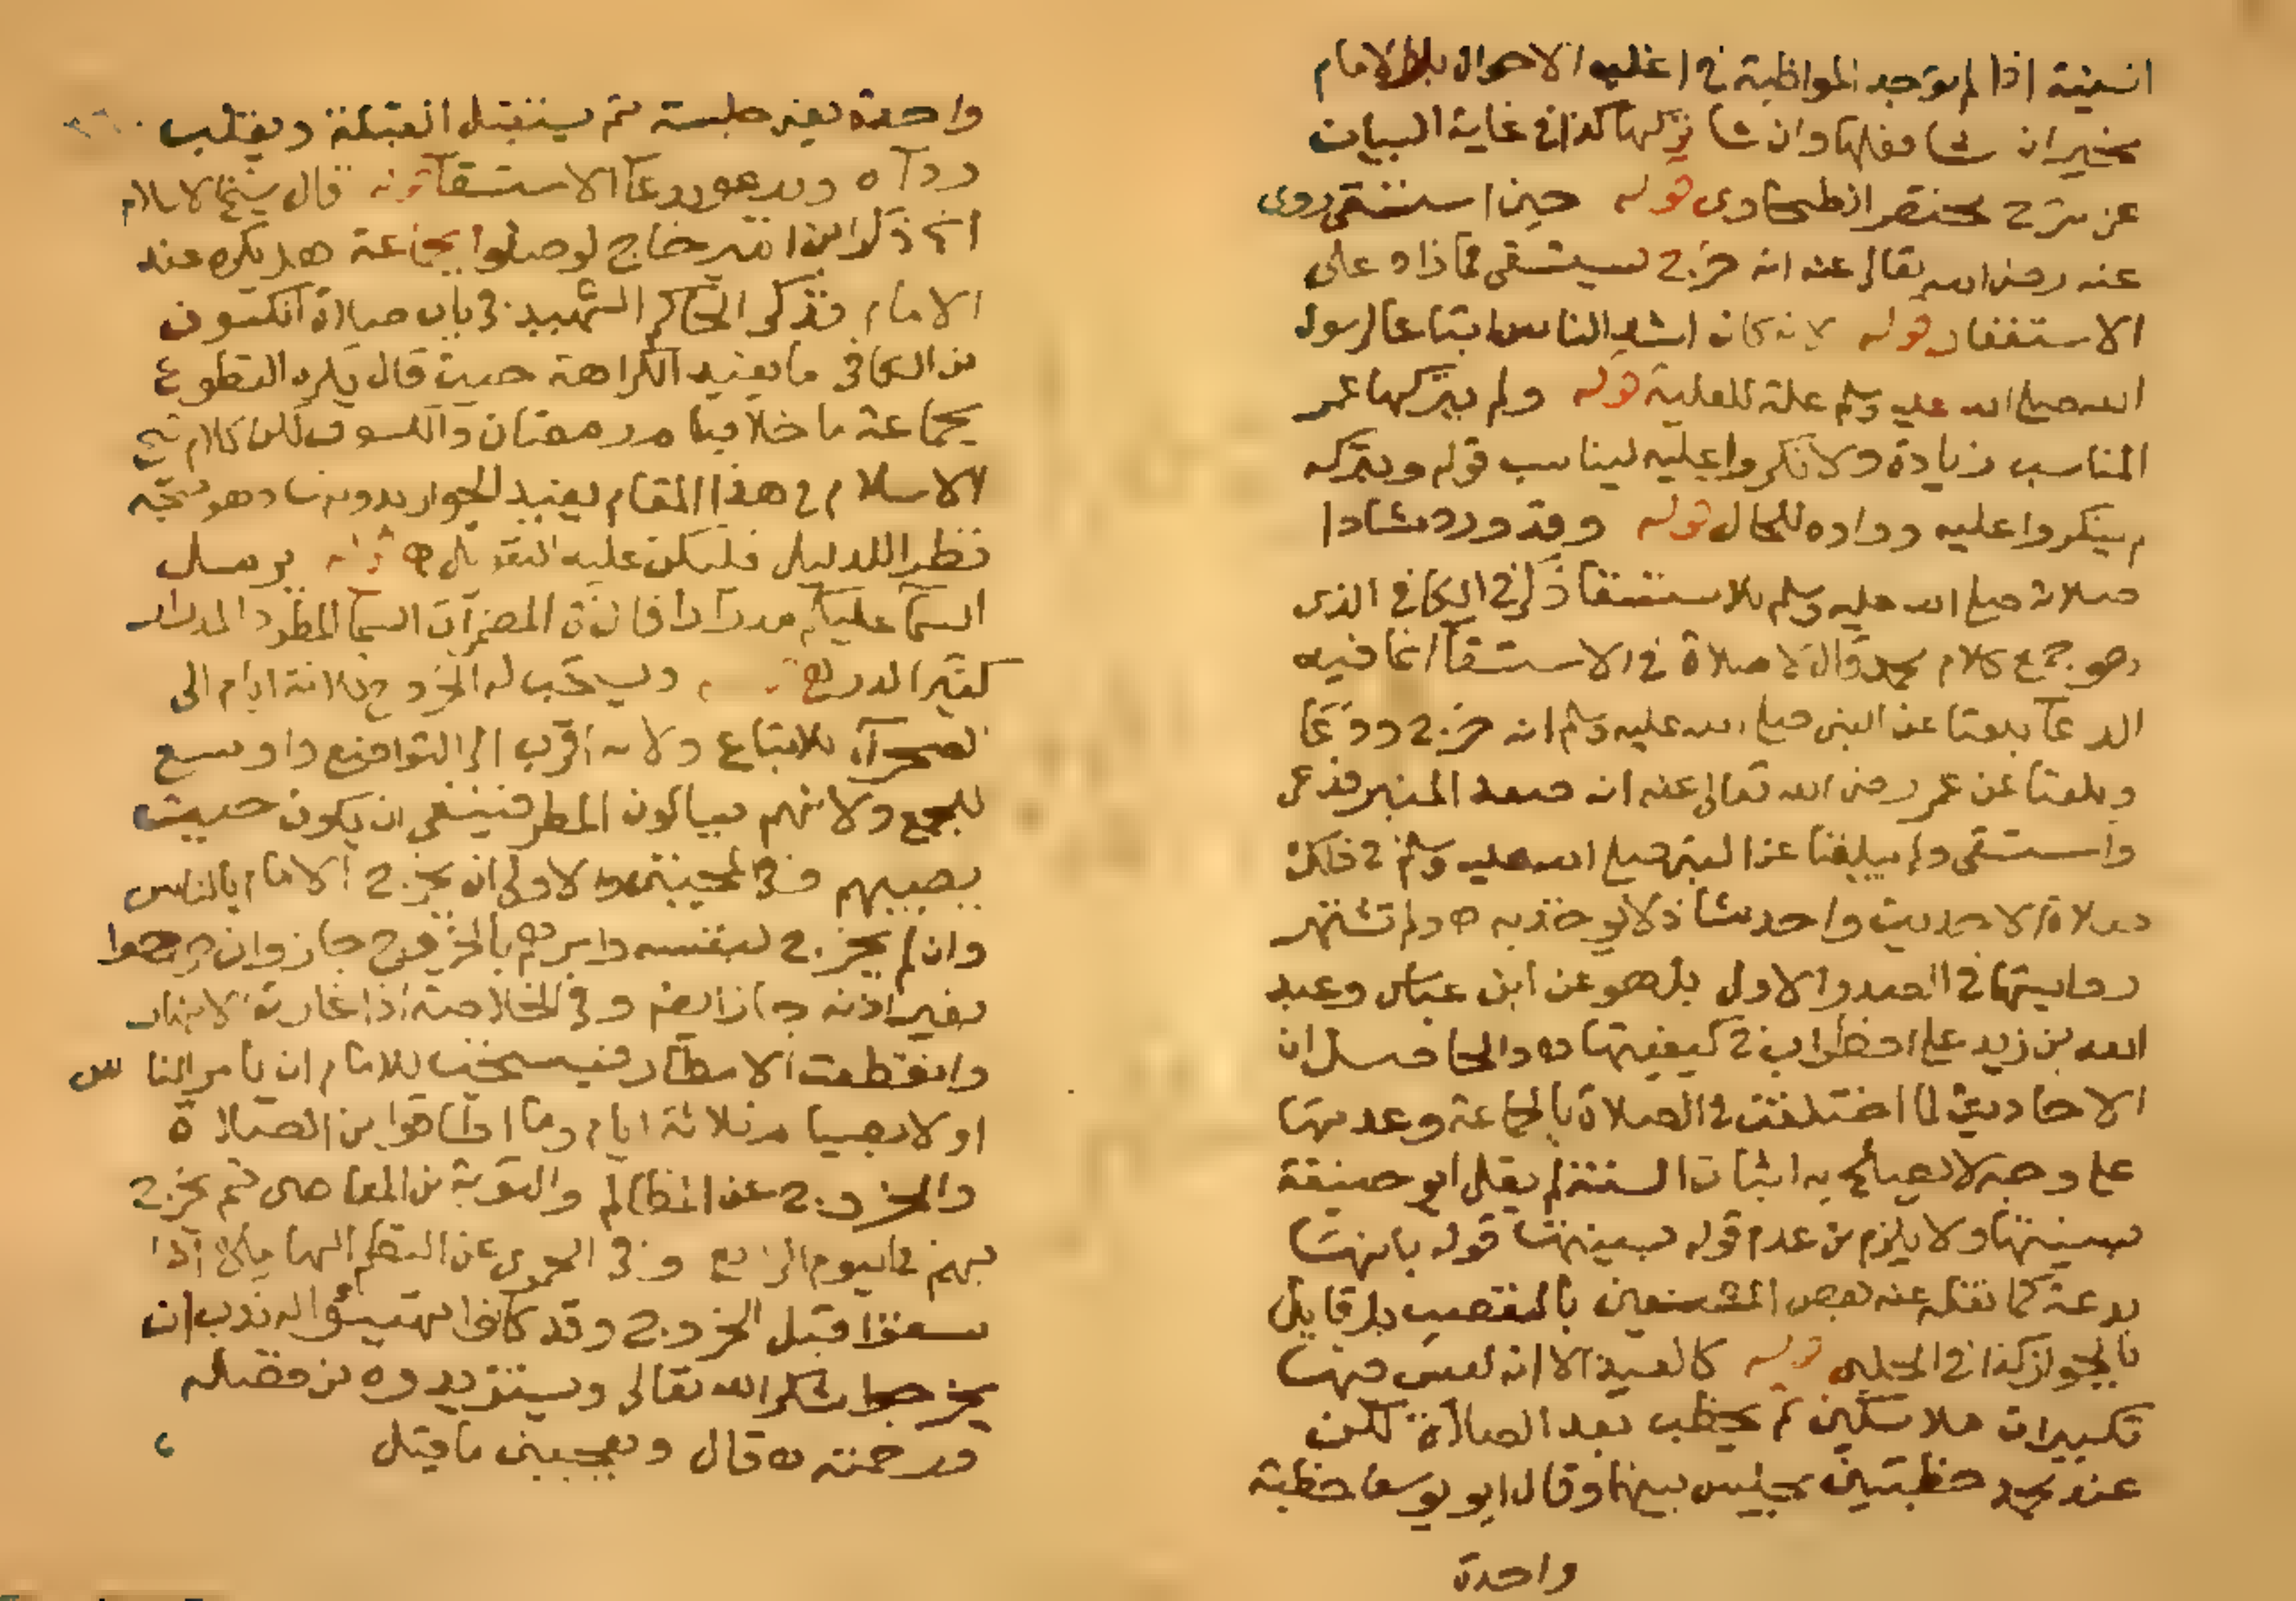 السنية اذا لم توجد المواظبة في اغلب الاحوال بل الامام
مخير ان شا فعلها وان شا تركها كذا في غاية البيان
عن شرح مختصر الطحاوى قوله حين استسقى روى
عنه رضى الله تعالى عنه انه خرج ليستسقى فما زاد على
الاستغفار قوله لانه كان اشد الناس اتباعا لرسول
الله صلى الله عليه وسلم علة للعلية قوله ولم يتركها عمر
المناسب زيادة ولا نكروا عليه ليناسب قوله وبتركه
لم ينكروا عليه وواوه للحال قوله وقد ورد شاذا
صلاته صلى الله عليه وسلم للاستسقا ذكر في الكافي الذى
هو جمع كلام محمد قال لا صلاة في الاستسقآ انما فيه
الدعآ بلغنا عن النبى صلى الله عليه وسلم انه خرج ودعا
وبلغنا عن عمر رضى الله تعالى عنه انه صعد المنبر فدعى
واستسقى ولم يبلغنا عن النبى صلى الله عليه وسلم في ذلك
صلاة الا حديث واحد شاذ لا يوخذ به ولم تشتهر
روايتها في الصدر الاول بل هو عن ابن عباس وعبد
الله بن زيد على اضطراب في كيفيتها والحاصل ان
الاحاديث لما اختلفت في الصلاة بالجماعة وعدمها
على وجه لا يصلح به اثبات السنة لم يقل ابو حنيفة
بسنيتها ولا يلزم من عدم قوله بسنيتها قوله بانها
بدعة كما نقله عنه بعض المشنعين بالتعصب بل قايل
بالجواز كذا في الحلبى قوله كالعيد الا انه ليس فيها
تكبيرات ثم يخطب بعد الصلاة لكن
عند محمد خطبتين يجلس بينهما وقال ابو يوسف خطبة
واحدة
واحدة بغير جلسة ثم يستقبل القبلة ويقلب
ردآه ويدعو ودعآ الاستسقآ قوله قال شيخ الاسلام
الخ ذكر ابن امير حاج لو صلوا بجماعة هل يكره عند
الامام فذكر الحاكم الشهيد في باب صلاة الكسوف
من الكافى ما يفيد الكراهة حيث قال يكره التطوع
جماعة ما خلا قيام رمضان والكسوف لكن كلام شيخ
الاسلام في هذا المقام يفيد الجواز بدونها وهو متجه
نظرا للدليل فليكن عليه التعويل قوله يرسل
السمآ عليكم مدرارا فان في المضمرات السما المطر والمدرار
كثير الدر قوله ويستحب له الخروج ثلاثة ايام الى
الصحرآء للاتباع ولانه اقرب الى التواضع واوسع
للجمع ولانهم يسالون المطر فينبغى ان يكون حيث
يصيبهم وفى المجتبى والاولى ان يخرج الامام بالناس
وان لم يخرج بنفسه وامرهم بالخروج جاز وان خرجوا
بغير اذنه جاز ايضا وفى الخلاصة اذا غارت الانهار
وانقطعت الامطار فيستحب للامام ان يامر الناس
اولا بصيام ثلاثة ايام وما اطاقوا من الصلاة
والخروج عن المظالم والتوبة من المعاصى ثم يخرج
بهم في اليوم الرابع وفى الحموى عن النظم
سقوا قبل الخروج وقد كانوا تهيئوا له ندب ان
يخرجوا شكرا لله تعالى ويستزيدوه من فضله
ورحمته قال ويعجبنى ما قيل